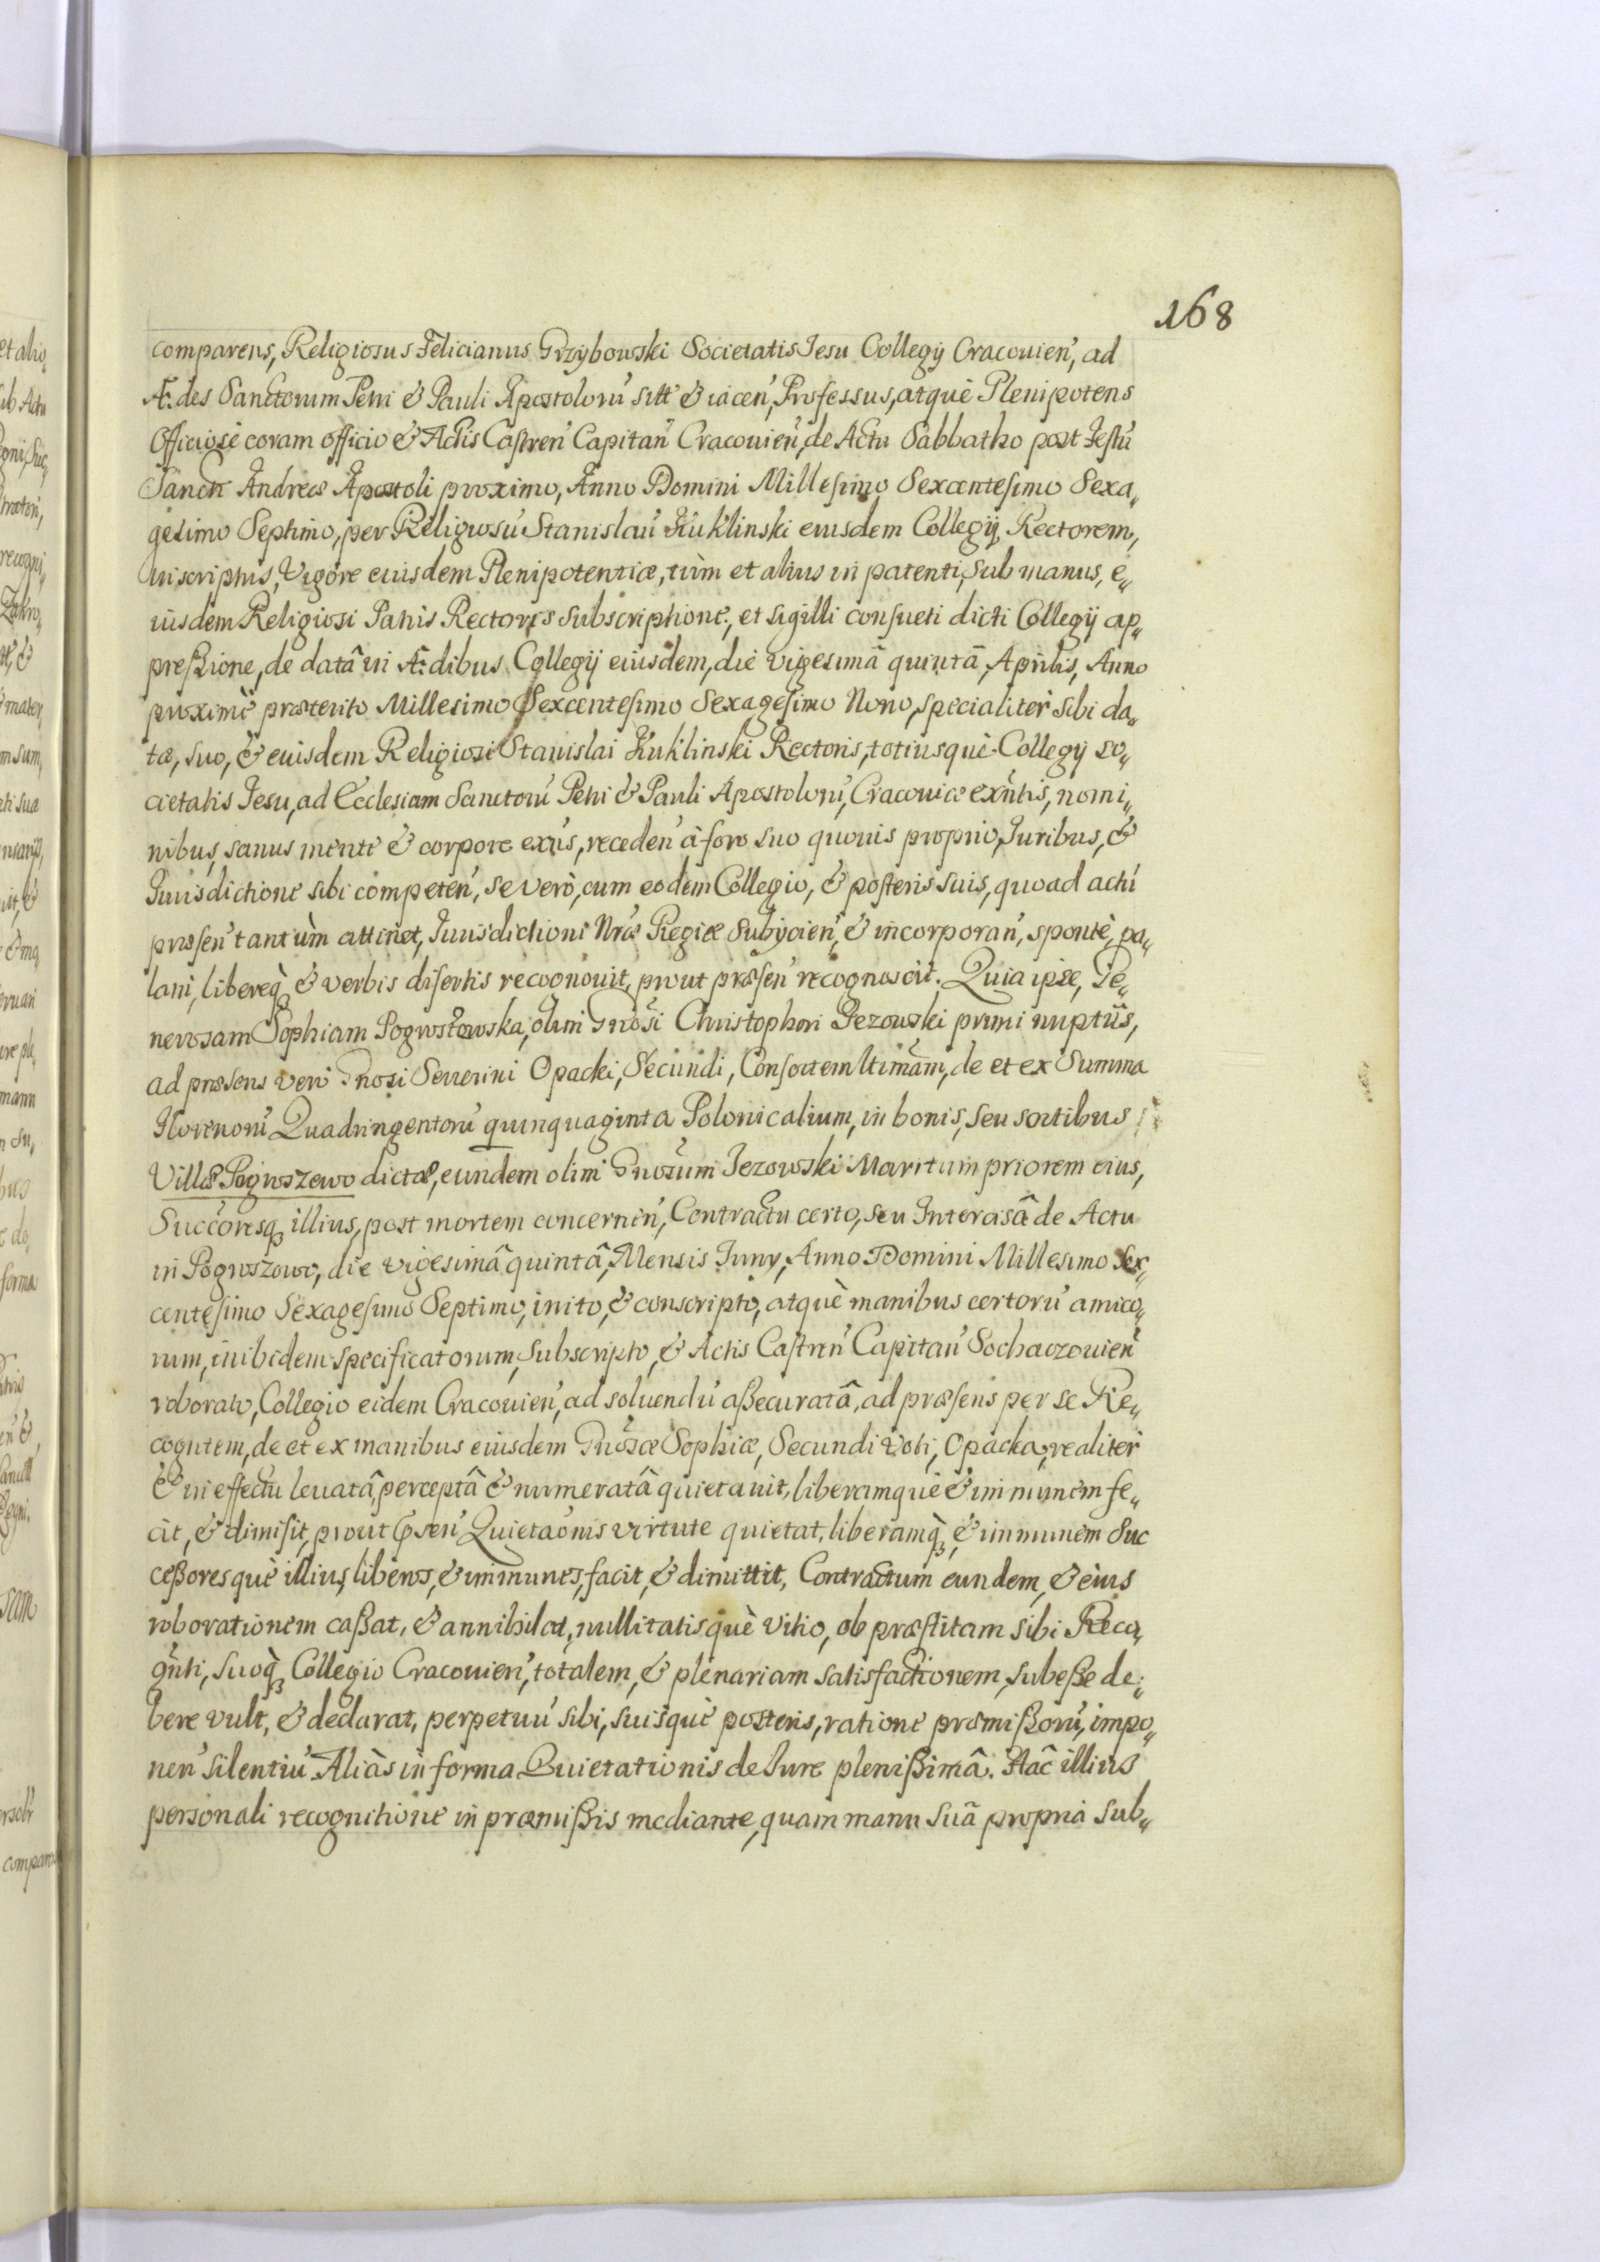 168
comparens, Religiosus Felicianus Grzybowski Societatis Iesu Collegij Cracouien̄, ad
Ædes Sanctorum Petri & Pauli Apostolorū sitt̄ & iacen̄, Professus, atquè Plenipotens
Officiosè coram officio & Actis Castren̄ Capitan̄ Cracouien̄, de Actu Sabbatho post Festū
Sancti Andreæ Apostoli proximo, Anno Domini Millesimo Sexcentesimo Sexa„
gesimo Septimo, per Religiosū Stanislaū Kuklinski eiusdem Collegij Rectorem,
inscriptus, Vigore eiusdem Plenipotentiæ, tùm et alius in patenti, sub manus, e„
iusdem Religiosi Patris Rectoris subscriptione, et sigilli consueti dicti Collegij ap„
preßione, de datâ in Ædibus Collegij eiusdem, die vigesimâ quintâ, Aprilis, Anno
proximè præterito Millesimo Sexcentesimo Sexagesimo Nono, specialiter sibi da„
tæ, suo, & eiusdem Religiosi Stanislai Kuklinski Rectoris, totiusquè Collegij so„
cietatis Iesu, ad Ecclesiam Sanctorū Petri & Pauli Apostolorū, Cracouiæ exn̄tis, nomi„
nibus, sanus mente & corpore exn̄s, receden̄ à foro suo quouis proprio, Iuribus, &
Iurisdictione sibi competen̄, se verò, cum eodem Collegio, & posteris suis, quoad actū
præsen̄ tantùm attinet, Iurisdictioni Nr̄æ Regiæ subijcien̄, & incorporan̄, spontè, pa„
lam, libereq̨ & verbis disertis recognouit, prout præsen̄ recognoscit. Quia ipse, Ge„
nerosam Sophiam Pogrosłowska, olim Gnōsi Christophori Jezowski primi nuptijs,
ad præsens verò Gnosi Seuerini Opacki, Secundi, Consortem ltimam, de et ex Summa
Florenorū Quadringentorū quinquaginta Polonicalium, in bonis, seu sortibus
Villæ Pogroszewo dictæ, eundem olim Gnosum Jezowski Maritum priorem eius,
Succōresq̨ illius, post mortem concernen̄, Contractu certo, seu Intercisâ de Actu
in Pogroszewo, die vigesimâ quintâ, Mensis Iuny, Anno Domini Millesimo Sex„
centesimo Sexagesimo Septimo, inito, & conscripto, atquè manibus certorū amico„
rum, inibidem specificatorum, subscripto, & Actis Castren̄ Capitan̄ Sochaczouien̄
roborato, Collegio eidem Cracouien̄, ad soluendū aßecuratâ, ad præsens per se Re„
cogn̄tem, de et ex manibus eiusdem Gnōsæ Sophiæ, Secundi voti, Opacka, realiter
& in effectu leuatâ, perceptâ & numeratâ quietauit, liberamquè & immunem fe„
cit, & dimisit, prout p̄sen̄ Quietaōnis virtute quietat, liberamq̨, & immunem Suc
ceßoresquè illius, liberos, & immunes, facit, & dimittit, Contractum eundem, & eius
roborationem caßat, & annihilat, nullitatisquè vitio, ob præstitam sibi Reco„
gn̄ti, suoq̨ Collegio Cracouien̄, totalem, & plenariam satisfactionem, subeße de„
bere vult, & declarat, perpetuū sibi, suisquè posteris, ratione præmißorū, impo„
nen̄ silentiū. Aliàs in forma Quietationis de Iure plenißimâ. Hâc illius
personali recognitione in præmißis mediante, quam manu suâ propriâ sub„